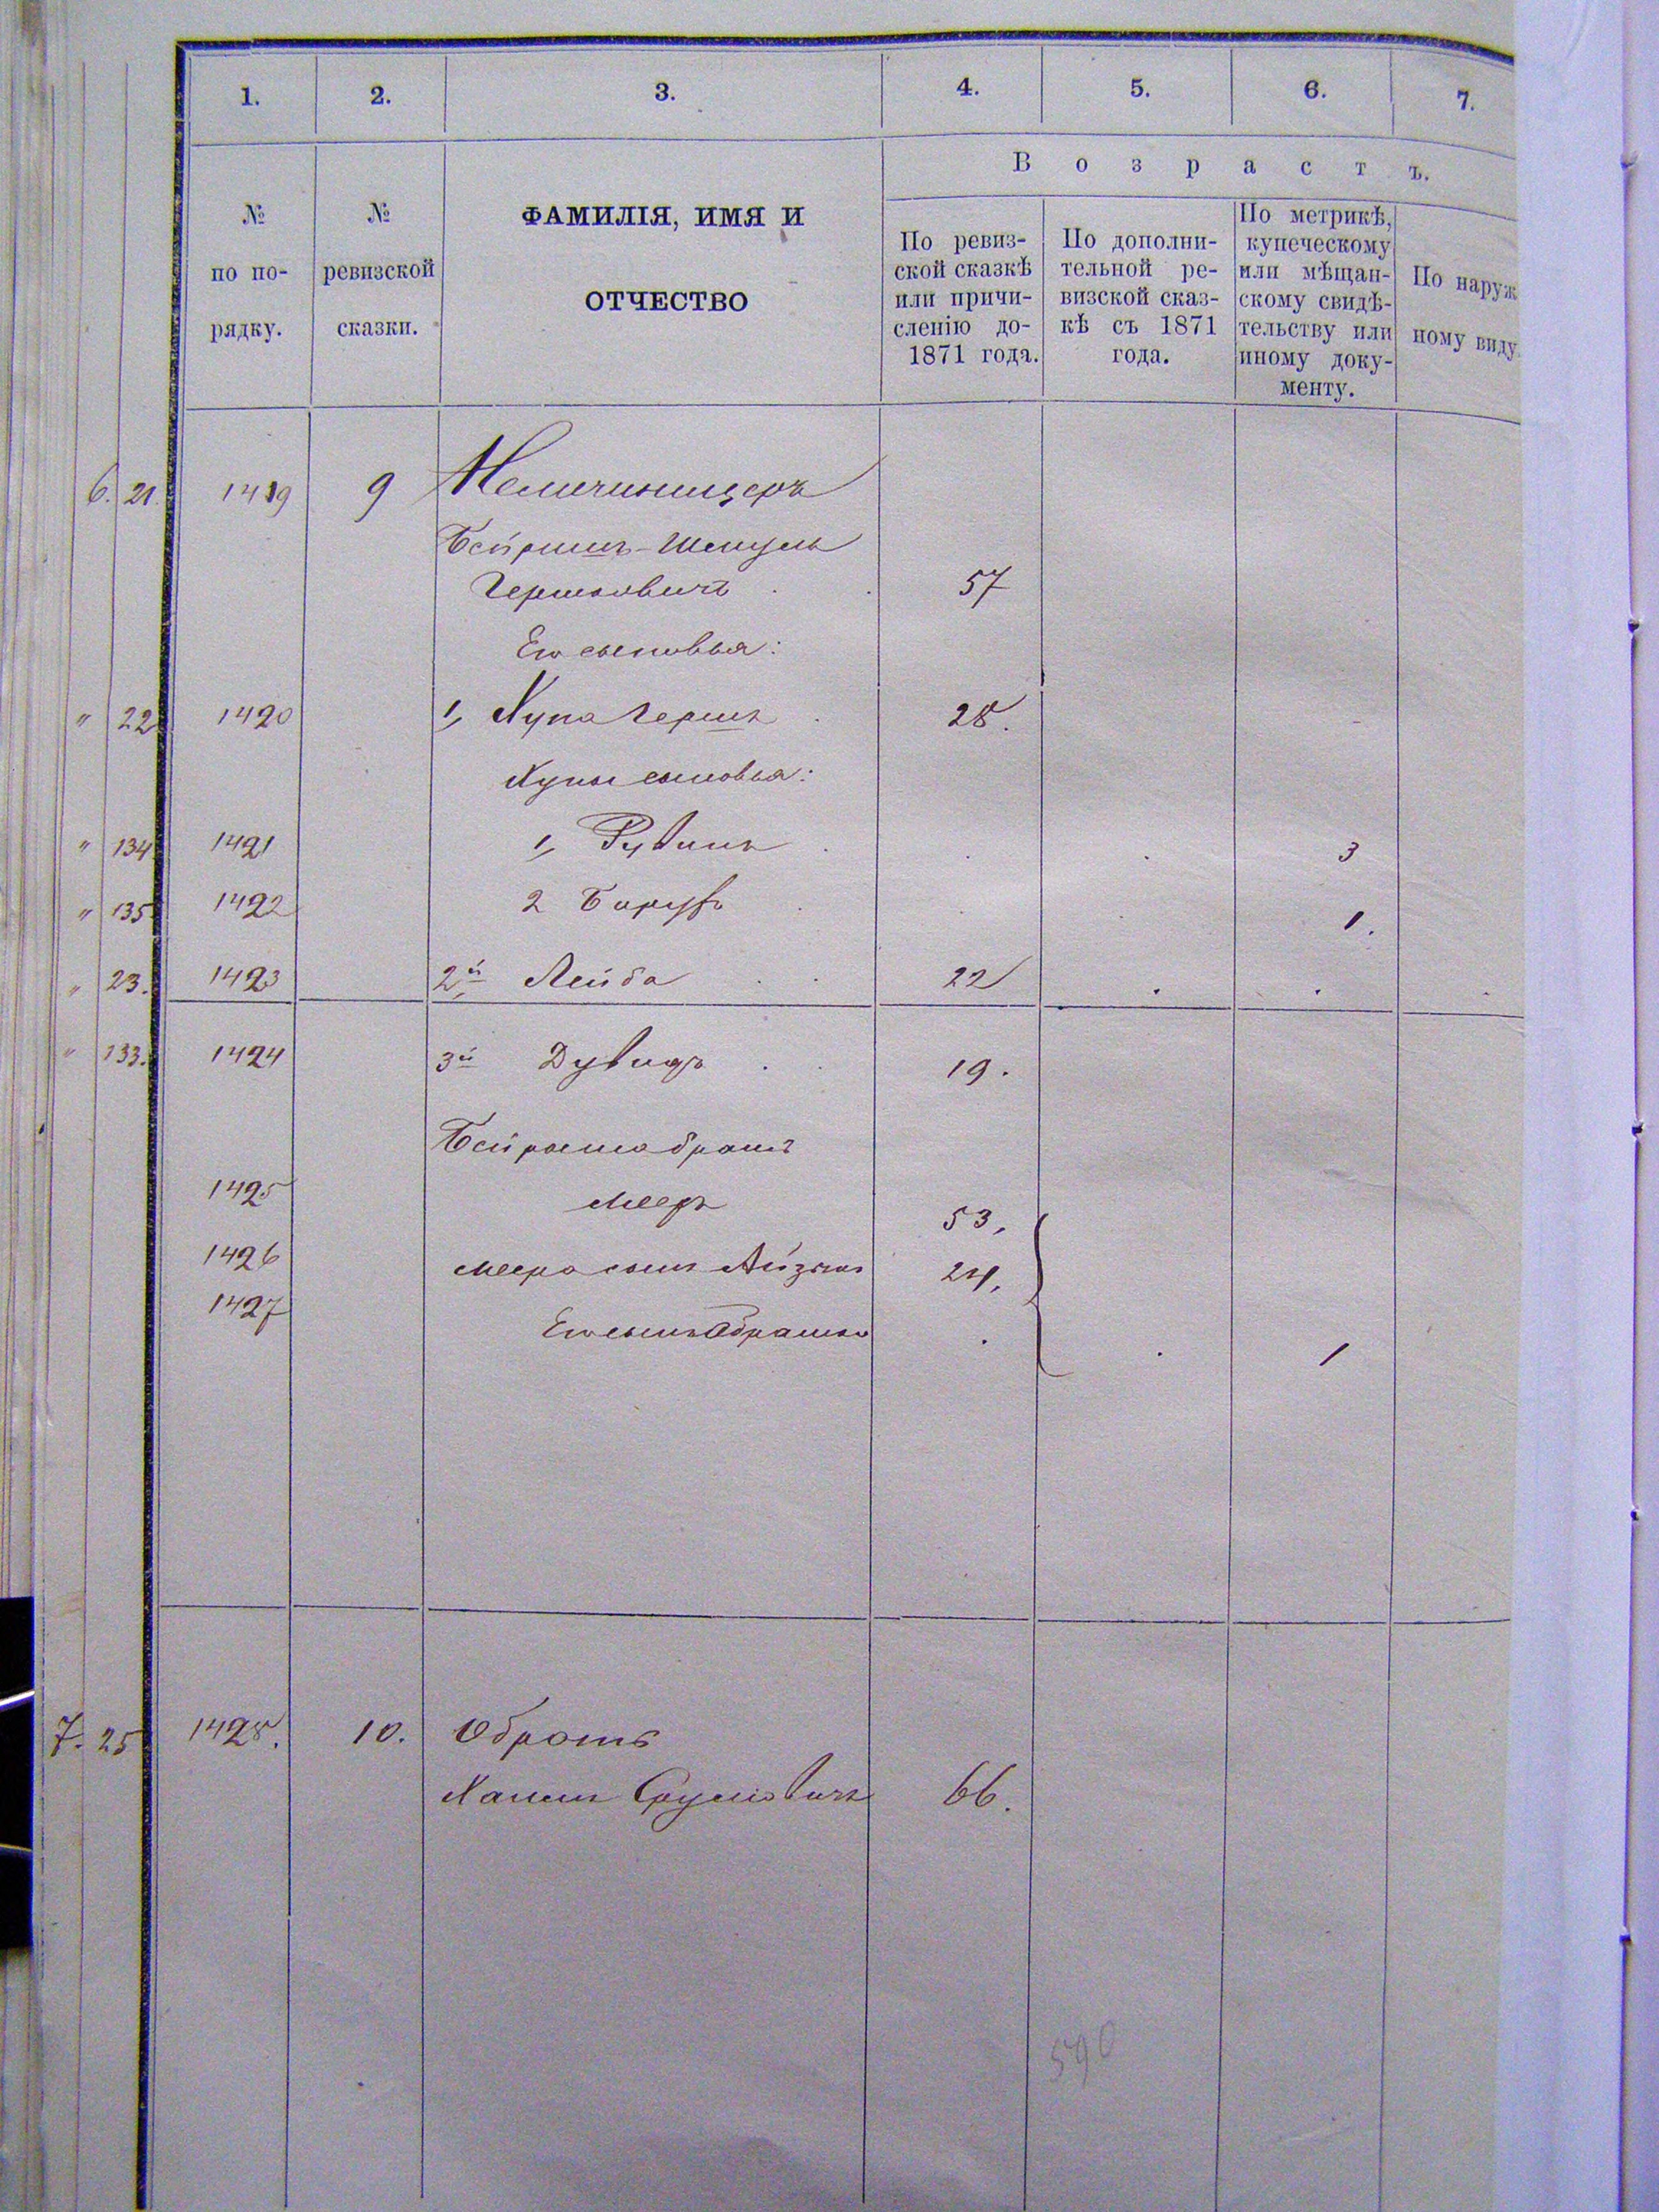 1. 2. 3. 4. 5. 6. 7.
В о з р а с т ъ.
№ по по- рядку.
№ ревизской сказки.
ФАМИЛІЯ, ИМЯ И
ОТЧЕСТВО
По ревиз-
ской сказкѣ
или причи-
сленію до-
1871 года.
По дополни-
тельной ре-
визской сказ-
кѣ съ 1871
года.
По метрикѣ,
купеческому
или мѣщан-
скому свидѣ-
тельству или
иному доку-
менту.
По наруж
ному виду.
6. 21. 1419 9
Бейришъ-Шмуль
Гершковичъ 57
Его сыновья:
" 22 1420 1, Купа Гершъ 28.
Купы сыновья:
" 134 1421 1, Рувинъ 3
" 135 1422 2 Борухъ 1.
" 23. 1423 2й Лейба 22
" 133. 1424 3й Дувидъ 19.
Бейриша братъ
1425 Мееръ 53,
1426 Меера сынъ Айзикъ 24,
1427 Его сынъ Абрамъ 1
7. 25 1428. 10.
Сруловичъ 66.
590